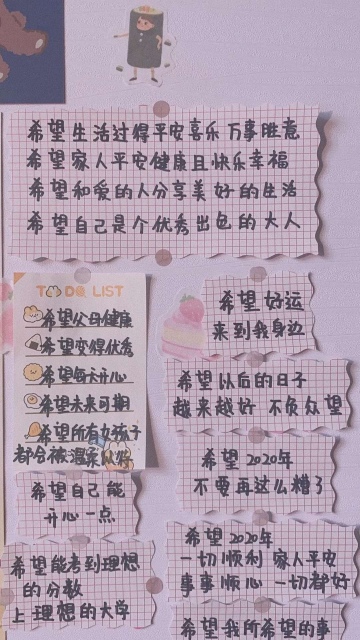 希望生活过得平安喜乐 万事胜意
希望家人平安健康且快乐幸福
希望和爱的人分享美好的生活
希望自己是个优秀出色的大人
TO DO LIST
希望父母健康
希望变得优秀
希望每天开心
希望未来可期
希望所有女孩子
都会被温柔以待
希望自己能
开心一点
希望能考到理想
的分数
上理想的大学
希望好运
来到我身边
希望以后的日子
越来越好 不负众望
希望2020年
不要再这么糟了
希望2020年
一切顺利 家人平安
事事顺心 一切都好
希望我所希望的事